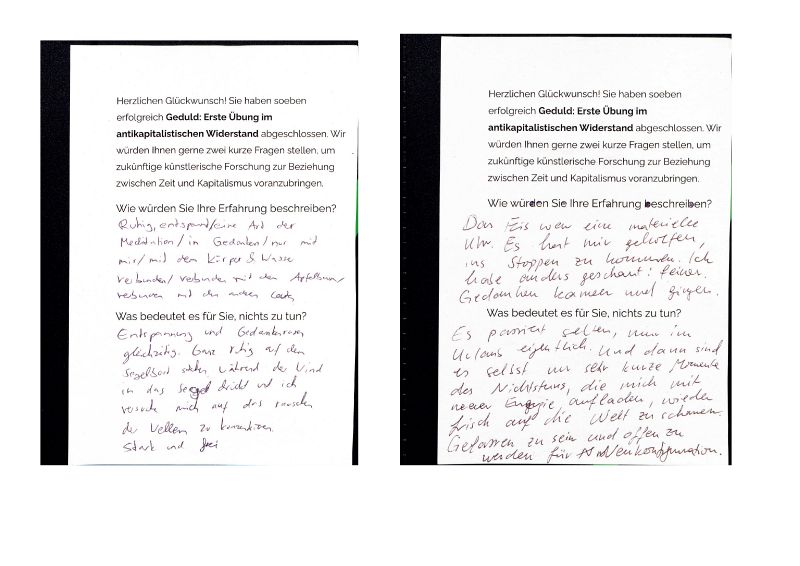 Herzlichen Glückwunsch! Sie haben soeben
erfolgreich Geduld: Erste Übung im
antikapitalistischen Widerstand abgeschlossen. Wir
würden Ihnen gerne zwei kurze Fragen stellen, um
zukünftige künstlerische Forschung zur Beziehung
zwischen Zeit und Kapitalismus voranzubringen.
Wie würden Sie Ihre Erfahrung beschreiben?
Ruhig, entspannt/eine Art der
Meditation/in Gedanken/nur mit
mir/mit dem Körper & Wasser
verbunden/verbunden mit dem Apfelbaum/
verbunden mit den anderen Leuten
Was bedeutet es für Sie, nichts zu tun?
Entspannung und
gleichzeitig. Ganz ruhig auf dem
Segelboot während der Wind
in das Segel drückt und ich
versuche mich auf das rauschen
der Wellen zu konzentrieren.
Stark und frei
Herzlichen Glückwunsch! Sie haben soeben
erfolgreich Geduld: Erste Übung im
antikapitalistischen Widerstand abgeschlossen. Wir
würden Ihnen gerne zwei kurze Fragen stellen, um
zukünftige künstlerische Forschung zur Beziehung
zwischen Zeit und Kapitalismus voranzubringen.
Wie würden Sie Ihre Erfahrung beschreiben?
Das Eis war eine materielle
Uhr. Es hat mir geholfen,
ins Stoppen zu kommen. Ich
habe anders geschaut: feiner.
Gedanken kamen und gingen.
Was bedeutet es für Sie, nichts zu tun?
Es passiert selten, nur im
Urlaub eigentlich. Und dann sind
es selbst nur sehr kurze Momente
des Nichtstuns, die mich mit
neuer Energie aufladen, wieder
frisch auf die Welt zu schauen.
Gelassen zu sein und offen zu
werden für Neukonfiguration.